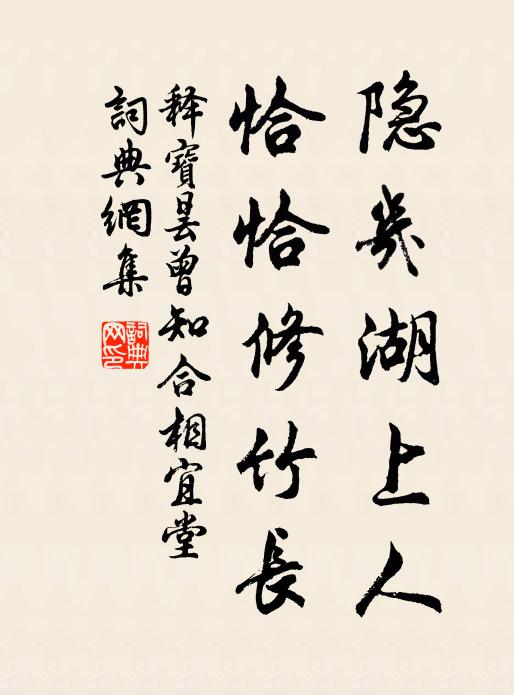 隐几湖上人
恰恰修竹長
释寶昙曾知合相宜堂
詞典網集
詞典网印